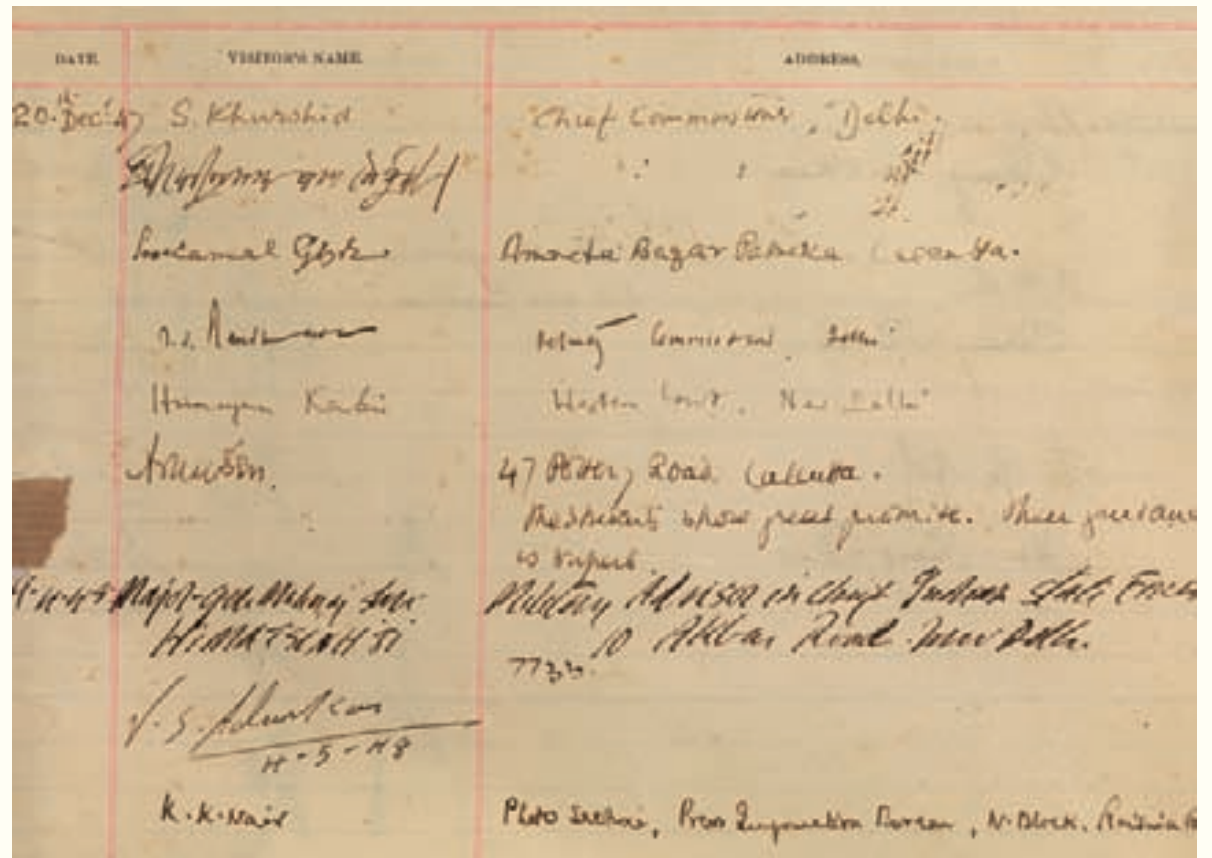 DATE VISITOR'S NAME. ADDRESS,
20.th Dec '47 S. Khurshid Chief Commissioner, Delhi.
" "
Ghosh. Amrita Bazar Patrika Calcutta.
Commissioner, Delhi
Humayun Kabir Western Court, New Delhi
47 Pottery Road Calcutta.
The students show great promise. Their guidance
is superb.
Major-Gen. Maharaj Shri Military Adviser in Chief Indian State Forces
HIMATSINHJI 10 Akbar Road. New Delhi.
7733.
V. S.
4-5-48
K. K. Nair Photo Section, Press Information Bureau, N. Block.